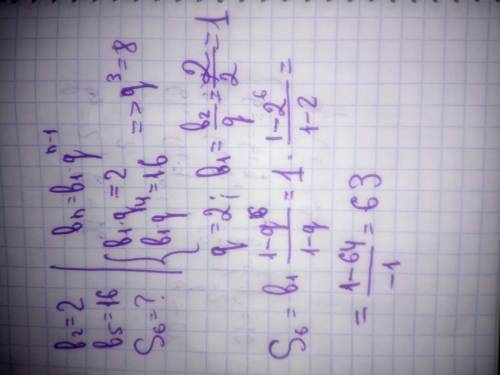 b₂=2 | bₙ=b₁·qⁿ⁻¹
b₅=16 | { b₁·q=2
S₆=? | { b₁q⁴=16 => q³=8
q=2; b₁=b₂/q=2/2=1
S₆=b₁ (1-q⁶)/(1-q)=1·(1-2⁶)/(1-2)=
=(1-64)/-1=63